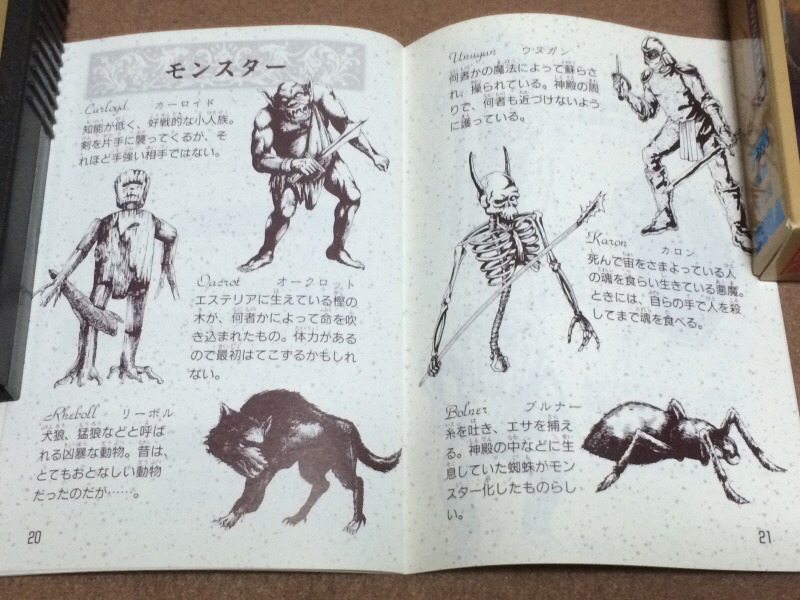 モンスター
Carloyd カーロイド
知能が低く、好戦的な小人族。
剣を片手に襲ってくるが、そ
れほど手強い相手ではない。
Oacrot オークロット
エステリアに生えている樫の
木が、何者かによって命を吹
き込まれたもの。体力がある
ので最初はてこずるかもしれ
ない。
Rheboll リーボル
犬狼、猛狼などと呼ば
れる凶暴な動物。昔は、
とてもおとなしい動物
だったのだが……。
20
ウヌガン
何者かの魔法によって蘇らさ
れ、操られている。神殿の周
りで、何者も近づけないよう
に護っている。
Karon カロン
死んで宙をさまよっている人
の魂を食らい生きている悪魔。
ときには、自らの手で人を殺
してまで魂を食べる。
Bolner ブルナー
糸を吐き、エサを捕え
る。神殿の中などに生
息していた蜘蛛がモン
スター化したものらし
い。
21